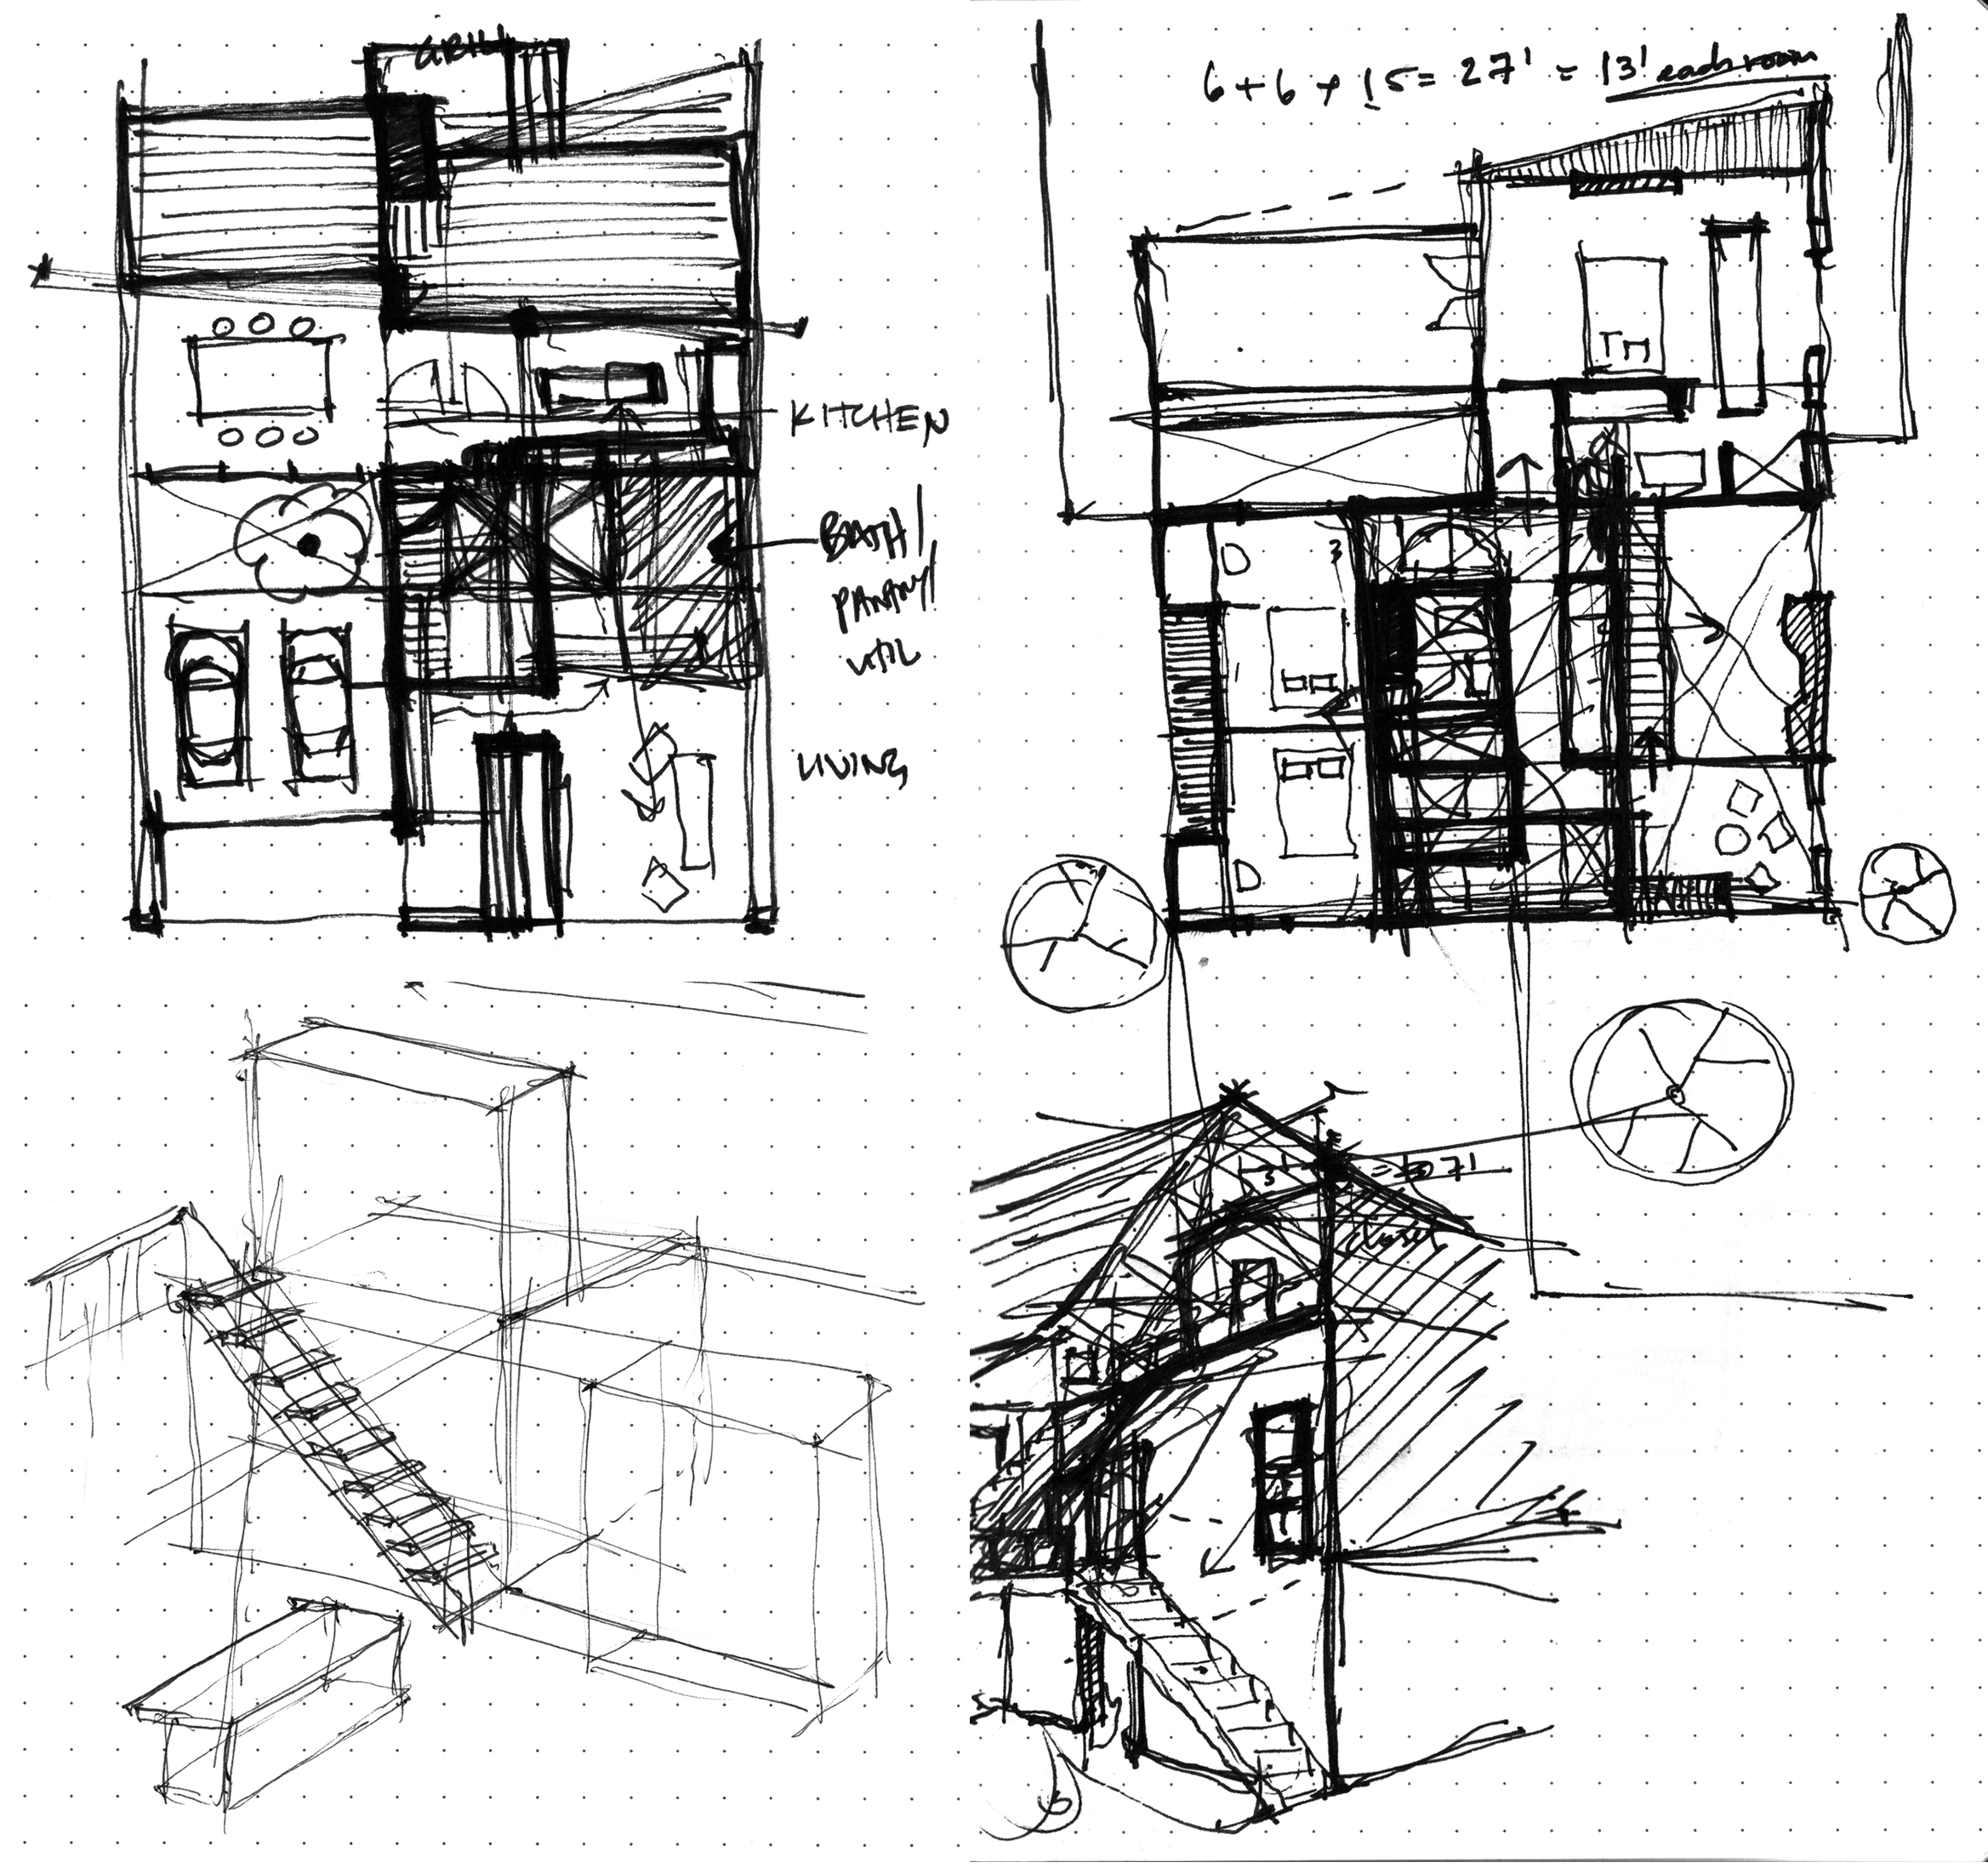 GRILL
KITCHEN
BATH/
PANTRY/
UTIL
LIVING
6+6+15=27' = 13' each room
3
3' = 7'
closet